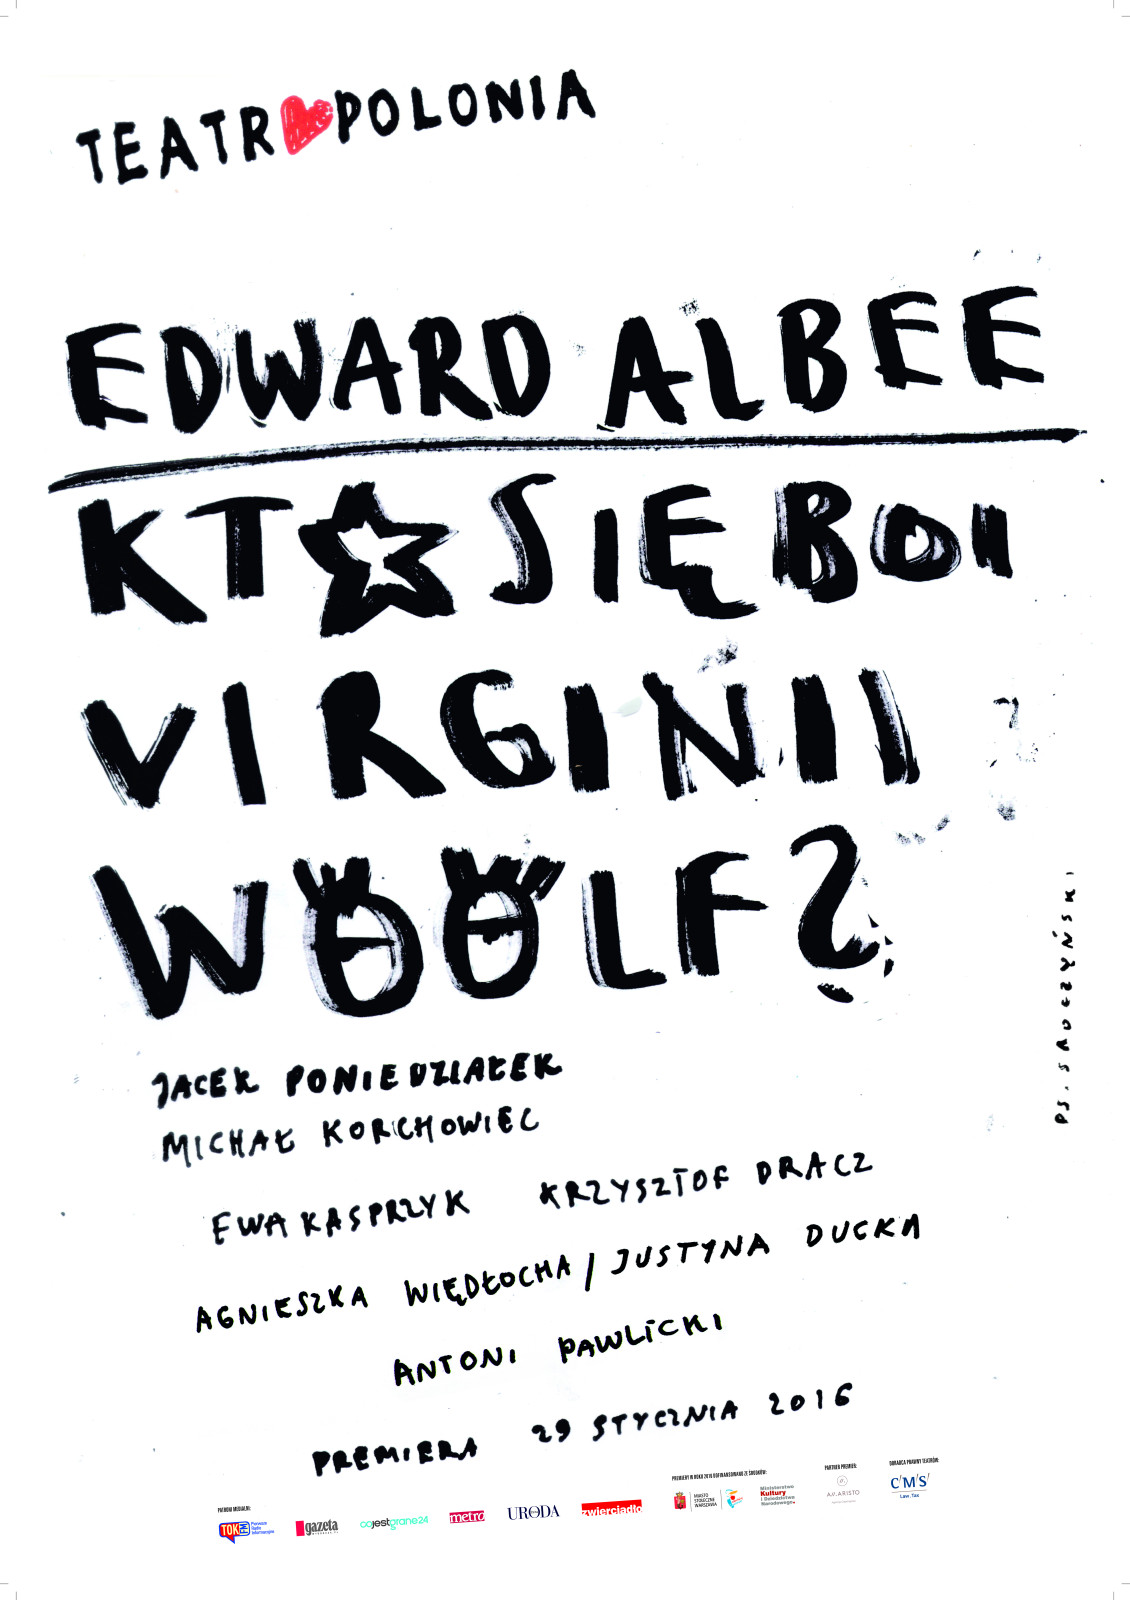 TEATR POLONIA
EDWARD ALBEE
KTO SIĘ BOI
VIRGINII
WOOLF?
PS. SROCZYŃSKI
JACEK PONIEDZIAŁEK
MICHAŁ KORCHOWIEC
EWA KASPRZYK KRZYSZTOF DRACZ
AGNIESZKA WIĘDŁOCHA / JUSTYNA DUCKA
ANTONI PAWLICKI
PREMIERA 29 STYCZNIA 2016
PATRONI MEDIALNI:
TOK FM Pierwsze Radio Informacyjne
gazeta
cojestgrane24
metro
URODA
zwierciadło
PREMIERY W ROKU 2016 DOFINANSOWANO ZE ŚRODKÓW:
MIASTO STOŁECZNE WARSZAWA
Ministerstwo Kultury i Dziedzictwa Narodowego
PARTNER PREMIER:
A.V. ARISTO
DORADCA PRAWNY TEATRÓW:
C/M/S/
Law.Tax